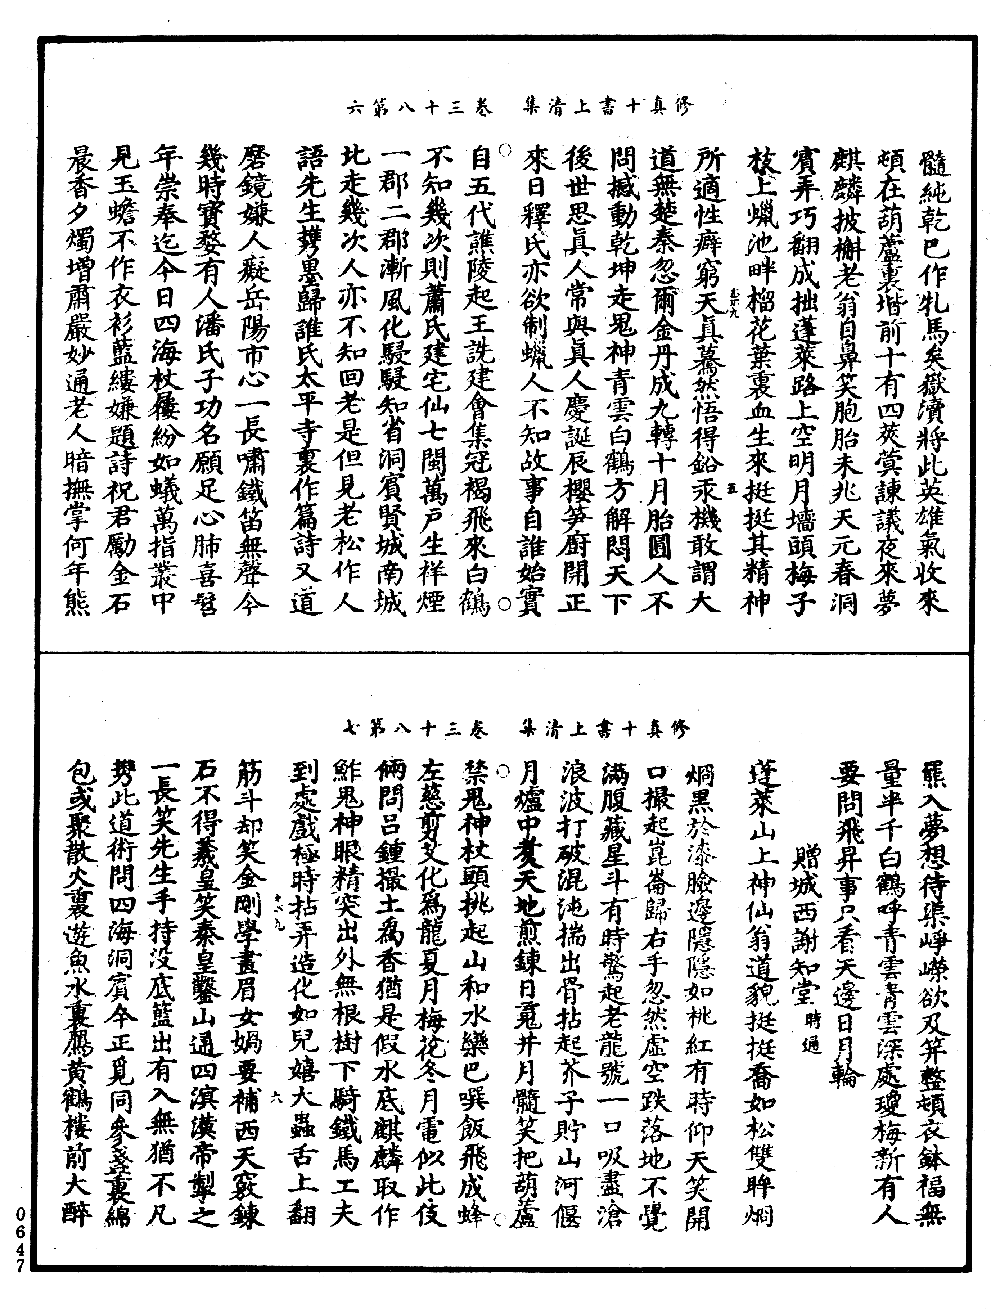 修真十書上清集　卷三十八第六
髓純乾已作牝馬矣嶽瀆將此英雄氣收來
頓在葫蘆裏堦前十有四莢蓂諫議夜來夢
麒麟披榭老翁自鼻笑胞胎未兆天元春洞
賓弄巧翻成拙蓬萊路上空明月墻頭梅子
枝上蠟池畔榴花葉裏血生來挺挺其精神
所適性癖窮天真驀然悟得鉛汞機敢謂大
道無楚秦忽爾金丹成九轉十月胎圓人不
問撼動乾坤走鬼神青雲白鶴方解悶天下
後世思真人常與真人慶誕辰櫻笋厨開正
來日釋氏亦欲制蠟人不知故事自誰始實
自五代譙陵起王詵建會集冠褐飛來白鶴
不知幾次則蕭氏建宅仙七閩萬戶生祥煙
一郡二郡漸風化駸駸知省洞賓賢城南城
比走幾次人亦不知回老是但見老松作人
語先生㩗墨歸誰氏太平寺裏作篇詩又道
磨鏡嫌人癡岳陽市心一長嘯鐵笛無聲今
幾時寳婺有人潘氏子功名願足心肺喜髫
年崇奉迄今日四海杖屨紛如蟻萬指叢中
見玉蟾不作衣衫藍縷嫌題詩祝君勵金石
晨香夕燭增肅嚴妙通老人暗撫掌何年熊
修真十書上清集　卷三十八第七
羆入夢想待渠崢嶸欲及笄整頓衣鉢福無
量半千白鶴呼青雲青雲深處瓊梅新有人
要問飛昇事只看天邊日月輪
贈城西謝知堂時過
蓬萊山上神仙翁道貌挺挺喬如松雙眸烱
烱黑於漆臉邊隱隱如桃紅有時仰天笑開
口撮起崑崙歸右手忽然虛空跌落地不覺
滿腹藏星斗有時驚起老龍號一口吸盡滄
浪波打破混沌揣出骨拈起芥子貯山河偃
月爐中煑天地煎鍊日䰟并月髓笑把葫蘆
禁鬼神杖頭挑起山和水欒巴噀飯飛成蜂
左慈剪艾化爲龍夏月梅花冬月電似此伎
倆問呂鍾撮土爲香猶是假水底麒麟取作
鮓鬼神眼精突出外無根樹下騎鐵馬工夫
到處戲極時拈弄造化如兒嬉大蟲舌上翻
筋斗却笑金剛學畫眉女媧要補西天竅鍊
石不得羲皇笑秦皇鑿山通四溟漢帝掣之
一長笑先生手持没底藍出有入無猶不凡
㩗此道術問四海洞賓今正覓同參盞裏綿
包或聚散火裏遊魚水裏鴈黄鶴樓前大醉
0647